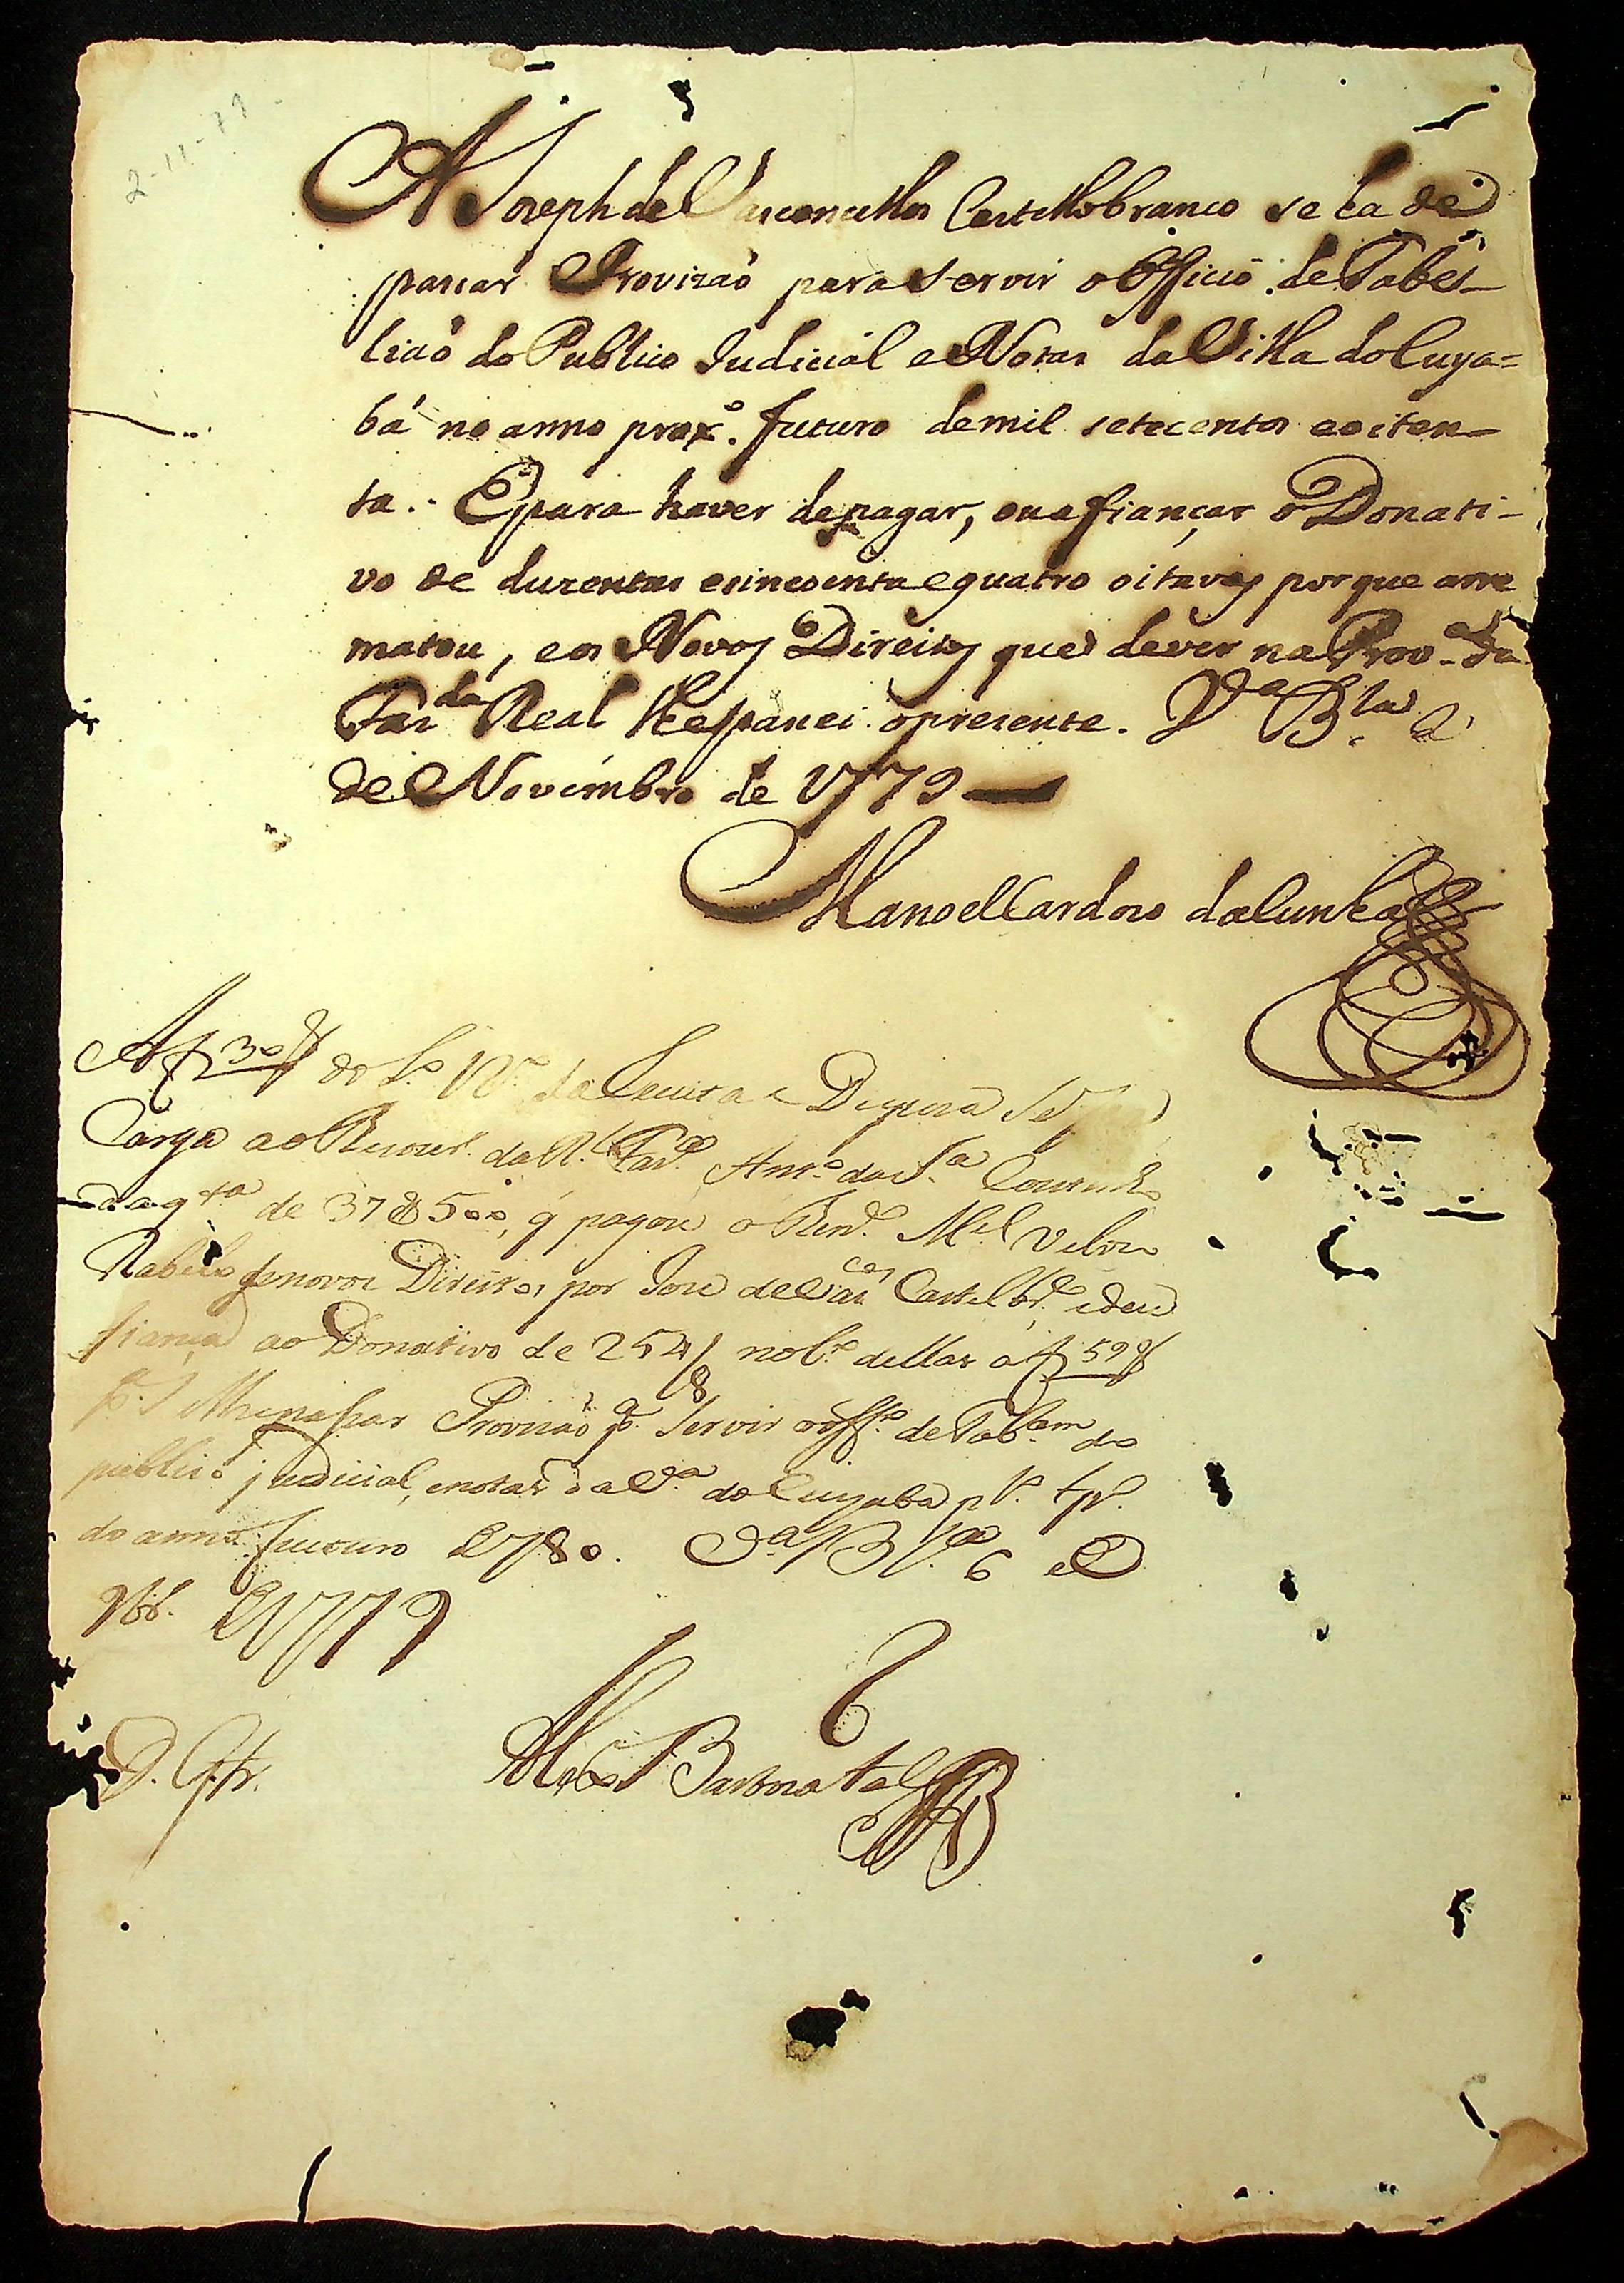 2-11-79
A Joseph de Vasconcellos Castellobranco se ha de
passar Provizaõ para servir o Officio de Tabel-
liaõ do Publico Judicial e Notas da Villa do Cuya=
bá no anno prox.º futuro de mil setecentos e oiten-
ta. E para haver de pagar, ou afiançar o Donati-
vo de duzentas e sincoenta e quatro oitavas por que arre
matou, e os Novos Direitos que dever na Prov.ª da
Faz.da Real lhe passei o presente. V.ª B.la 2
de Novembro de 1779
Manoel Cardozo da Cunha
A f 30 do L.º da Receita e Despeza
Carga ao da R.l Faz.da Ant.º da S.ª Coutinho
da q.ta de 37$500, q pagou o M.el Velozo
Rabello de novos Direitos, por Joze de Vas.cos Castel br.º e deu
fiança ao Donativo de 254/8 no L.º dellas a f 59
p.ª se lhe passar Provizaõ p.ª servir o off.º de Tab.am do
publico judicial, e notas da V.ª do Cuyaba p.r tp.º
do anno futuro de 1780. V.ª B.la 6 de
9br.º de 1779